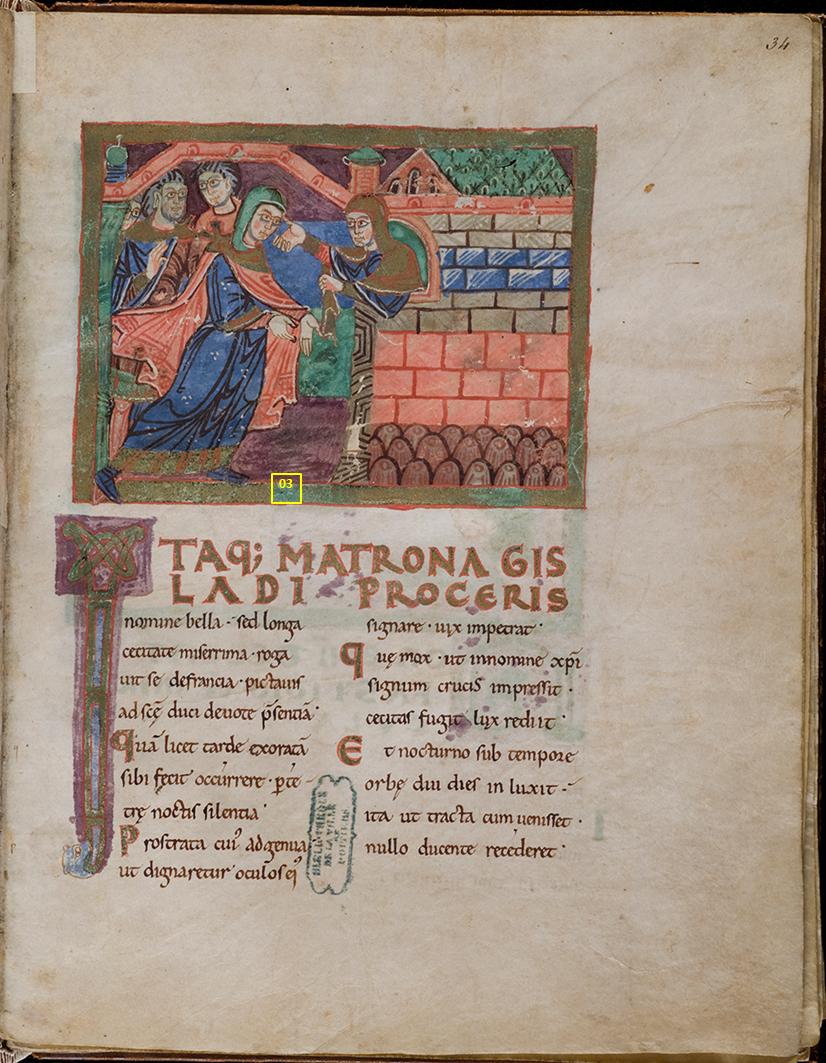 34
03
ITAQ; MATRONA GIS
LADI PROCERIS
nomine bella · sed longa
cecitate miserrima · roga
uit se defrancia · pictauis
ad scę duci deuote p̄sentiā·
Quā licet tarde exoratā
sibi fecit occurrere · per te
trę noctis silentia·
Prostrata cui' ad genua
ut dignaretur oculos ei'
signare · uix impetrat·
quę mox · ut innomine xp̄i
signum crucis impressit ·
cecitas fugit lux rediit·
Et nocturno sub tempore
orbę diu dies inluxit ·
ita ut tracta cum uenisset ·
nullo ducente recederet·
BIBLIOTHEQUE
DE LA VILLE
DE
POITIERS